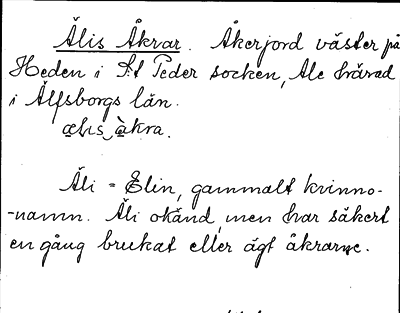 Älis Åkrar. Åkerjord väster på
Heden i St Peder socken, Ale härad
i Älfsborgs län.
æLis àkra.
Äli = Elin, gammalt kvinno-
-namn. Äli okänd, men har säkert
en gång brukat eller ägt åkrarne.